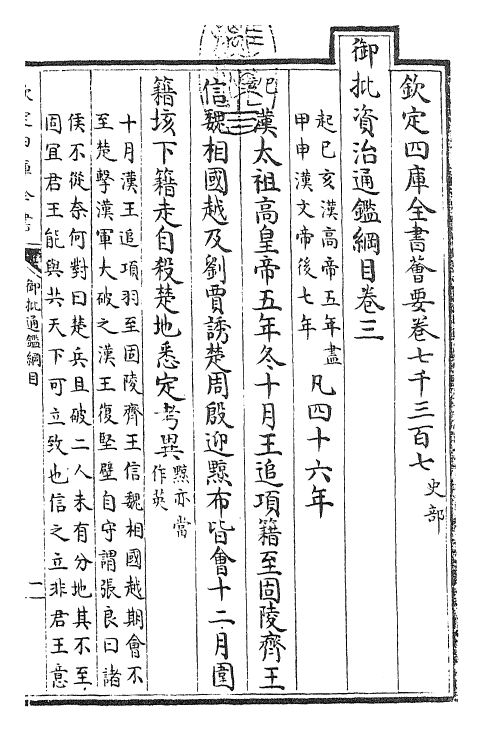 欽定四庫全書薈要卷七千三百七 史部
御批資治通鑑綱目卷三
起巳亥漢高帝五年盡
甲申漢文帝後七年
凡四十六年
漢太祖高皇帝五年冬十月王追項籍至固陵齊王
信魏相國越及劉賈誘楚周殷迎黥布皆會十二月圍
籍垓下籍走自殺楚地悉定考異
黥亦當
作英
十月漢王追項羽至固陵齊王信魏相國越期會不
至楚擊漢軍大破之漢王復堅壁自守謂張良曰諸
侯不從奈何對曰楚兵且破二人未有分地其不至
固宜君王能與共天下可立致也信之立非君王意
欽定四庫全書
御批通鑑綱目